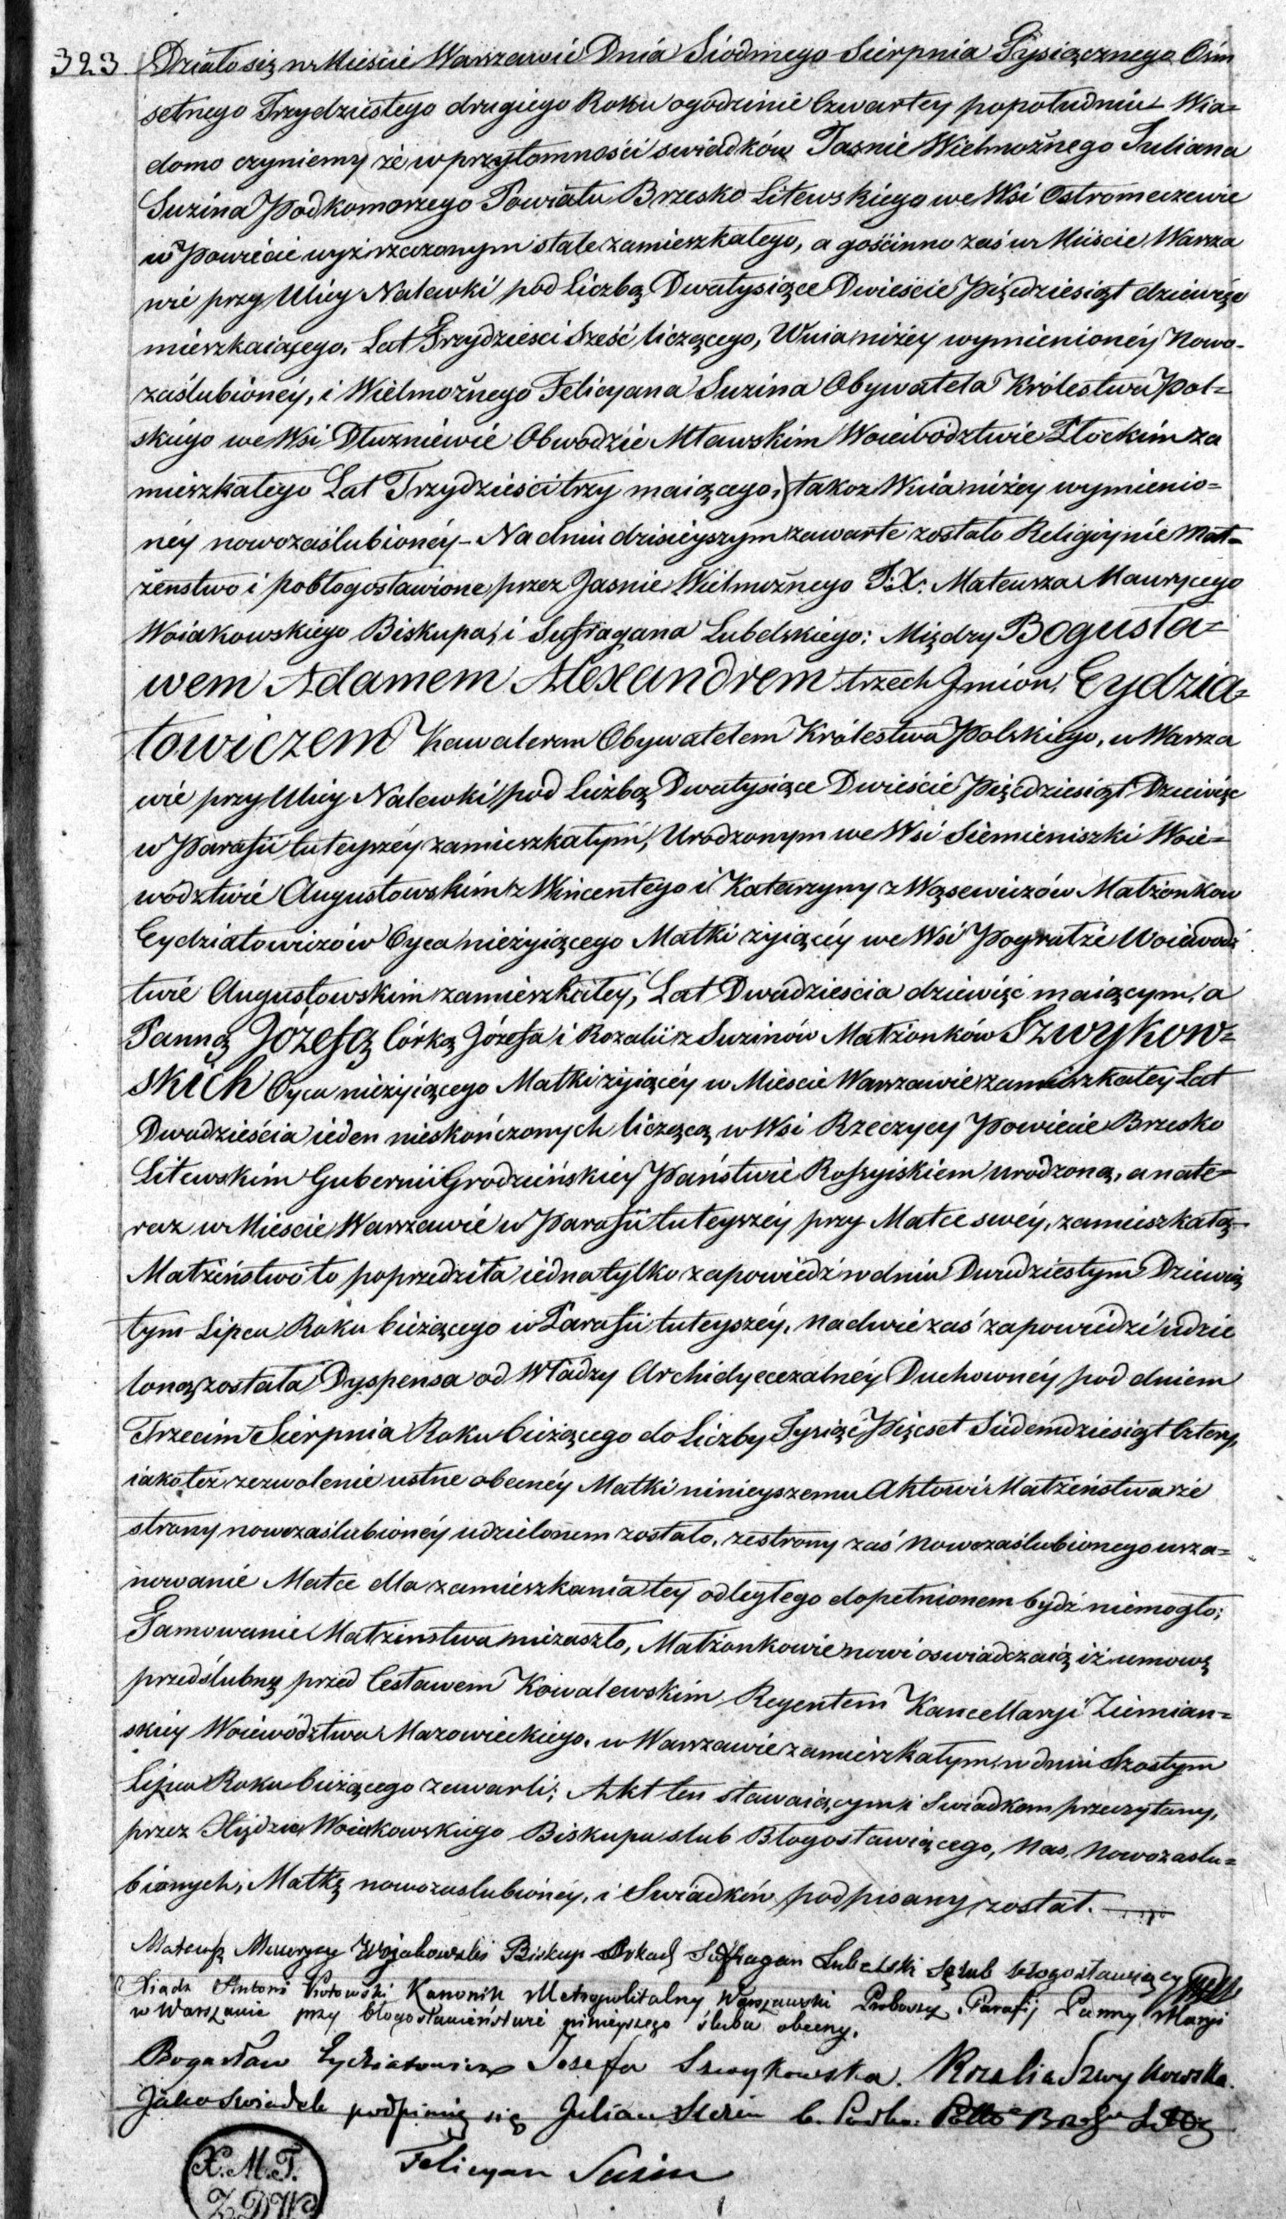 323. Działo się w Mieście Warszawie Dnia Siódmego Sierpnia Tysiącznego Ośm
setnego Trzydziestego drugiego Roku o godzinie Czwartey popołudniu Wia=
domo czyniemy że w przytomności świadków Jaśnie Wielmożnego Juliana
Suzina Podkomorzego Powiatu Brzesko Litewskiego we Wsi Ostromeczewie
w Powiecie wyżrzeczonym stale zamieszkałego, a gościnno zaś w Mieście Warsza
wie przy Ulicy Nalewki pod Liczbą Dwatysiące Dwieście Pięćdziesiąt dziewięć
mieszkaiącego, Lat Trzydzieści Sześć liczącego, Wuia niżey wymienioney Nowo-
zaślubioney, i Wielmożnego Felicyana Suzina Obywatela Królestwa Pol=
skiego we Wsi Dłużniewie Obwodzie Mławskim Woiewództwie Płockim za
mieszkałego Lat Trzydzieści trzy maiącego, takoż Wuia niżey wymienio=
ney nowozaślubioney – Na dniu dzisieyszym zawarte zostało Religiynie Mał=
żeństwo i pobłogosławione przez Jaśnie Wielmożnego J:X: Mateusza Maurycego
Woiakowskiego Biskupa, i Sufragana Lubelskiego; Między Bogusła=
wem Adamem Alexandrem trzech Jmion, Eydzia=
towiczem Kawalerem Obywatelem Królestwa Polskiego, w Warsza
wie przy Ulicy Nalewki pod Liczbą Dwatysiące Dwieście Pięćdziesiąt Dziewięć
w Parafii tuteyszéy zamieszkałym, Urodzonym we Wsi Siemieniszki Woie=
wództwie Augustowskim z Wincentego i Katarzyny z Wąsewiczów Małżonków
Eydziatowiczów Oyca nieżyiącego Matki żyiącéy we Wsi Pogratże Woiewódz
twie Augustowskim zamieszkałey, Lat Dwadzieścia dziewięć maiącym, a
Panną Józefą Córką Józefa i Rozalii z Suzinów Małżonków Szwykow=
skich Oyca nieżyiącego Matki żyiącéy w Mieście Warszawie zamieszkałey Lat
Dwadzieścia ieden nieskończonych liczącą w Wsi Rzeczycy Powiecie Brzesko
Litewskim Gubernii Grodzieńskiey Państwie Rossyiskiem urodzoną, a nate=
raz w Mieście Warszawie w Parafii tuteyszéy przy Matce swéy, zamieszkałą –
Małżeństwo to poprzedziła iedna tylko zapowiedź w dniu Dwudziestym Dziewią
tym Lipca Roku bieżącego w Parafii tuteyszéy, na dwie zaś zapowiedzi udzie
loną została Dyspensa od Władzy Archidyecezalnéy Duchownéy pod dniem
Trzecim Sierpnia Roku bieżącego do Liczby Tysiąc Pięćset Siedmdziesiąt Cztery,
iako też zezwolenie ustne obecnéy Matki ninieyszemu Aktowi Małżeństwa ze
strony nowozaślubionéy udzielonem zostało, ze strony zaś Nowozaślubionego usza=
nowanie Matce dla zamieszkania tey odległego dopełnionem bydź niemogło;
Tamowanie Małżeństwa niezaszło, Małżonkowie nowi oświadczaią iż umowę
przedślubną przed Cesławem Kowalewskim Regentem Kancellaryi Ziemian=
skiey Woiewództwa Mazowieckiego, w Warszawie zamieszkałym, w dniu Szóstym
Lipca Roku bieżącego zawarli; Akt ten stawaiącym i Swiadkom przeczytany,
przez Xiędza Woiakowskiego Biskupa slub Błogosławiącego, Nas, Nowozaslu=
bionych, Matkę nowozaslubionéy, i Swiadków podpisany został.
Mateusz Maurycy Wojakowski Biskup Arkad Suffragan Lubelski Szlub błogosławiący
Xiądz Antoni Kotowski Kanonik Metropolitalny Warszawski Proboszcz Parafij Panny Maryi
w Warszawie przy błogosławieństwie ninieyszego slubu obecny.
Bogusław Eydziatowicz Jozefa Szwykowska. Rozalia Szwykowska.
Jako Swiadek podpisuię się Julian Suzin b. Podko:
Felicyan Suzin
X.M.T.
Z.D.W.